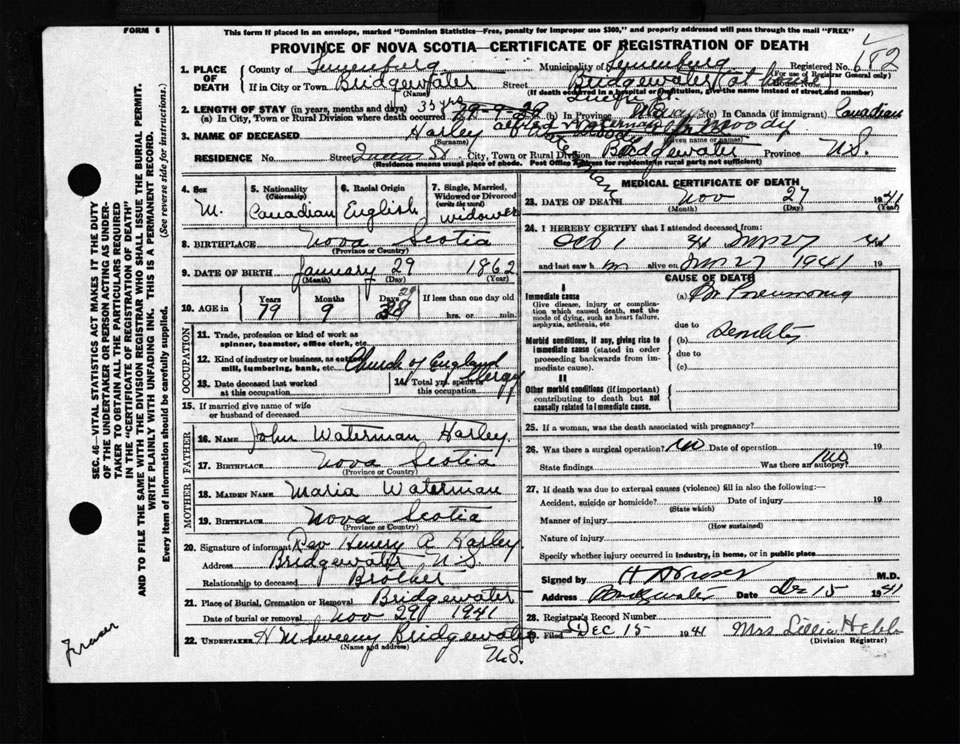 FORM 6
This form if placed in an envelope, marked "Dominion Statistics—Free, penalty for improper use $300," and properly addressed will pass through the mail "FREE"
PROVINCE OF NOVA SCOTIA—CERTIFICATE OF REGISTRATION OF DEATH
Registered No. 682
(For use of Registrar General only)
1. PLACE OF DEATH
County of Lunenburg
Municipality of Lunenburg
If in City or Town Bridgewater
(Name)
Street Bridgewater (at home)
House No.
Queen St.
(If death occurred in a hospital or institution, give the name instead of street and number)
2. LENGTH OF STAY (in years, months and days)
(a) In City, Town or Rural Division where death occurred 35 yrs
(b) In Province
(c) In Canada (if immigrant) Canadian
3. NAME OF DECEASED Harley
(Surname)
Moody
(Given name or names)
RESIDENCE No. Street Queen St City, Town or Rural Division Bridgewater Province N.S.
(Residence means usual place of abode. Post Office Address for residents in rural parts not sufficient)
4. Sex M.
5. Nationality (Citizenship) Canadian
6. Racial Origin English
7. Single, Married, Widowed or Divorced (write the word) Widower
8. BIRTHPLACE Nova Scotia
(Province or Country)
9. DATE OF BIRTH January 29 1862
(Month) (Day) (Year)
10. AGE in Years 79 Months 9 Days 29
If less than one day old
hrs. or min.
OCCUPATION
11. Trade, profession or kind of work as spinner, teamster, office clerk, etc.
12. Kind of industry or business, as cotton mill, lumbering, bank, etc. Church of England Clergy
13. Date deceased last worked at this occupation
14. Total yrs. spent in this occupation
15. If married give name of wife or husband of deceased
FATHER
16. NAME John Waterman Harley.
17. BIRTHPLACE Nova Scotia
(Province or Country)
MOTHER
18. MAIDEN NAME Maria Waterman
19. BIRTHPLACE Nova Scotia
(Province or Country)
20. Signature of informant Rev Henery A Harley.
Address Bridgewater N.S.
Relationship to deceased Brother
21. Place of Burial, Cremation or Removal Bridgewater
Date of burial or removal Nov 29, 1941
22. UNDERTAKER H McSweeny Bridgewater
(Name and address)
N.S.
MEDICAL CERTIFICATE OF DEATH
23. DATE OF DEATH Nov 27 1941
(Month) (Day) (Year)
24. I HEREBY CERTIFY that I attended deceased from
Oct 1 41 Nov 27 41
and last saw h im alive on Nov 27 1941 19
CAUSE OF DEATH
I
Immediate cause
Give disease, injury or complication which caused death, not the mode of dying, such as heart failure, asphyxia, asthenia, etc
(a) Br Pneumonia
due to
Morbid conditions, if any, giving rise to immediate cause (stated in order proceeding backwards from immediate cause).
(b) Senility
due to
(c)
II
Other morbid conditions (if important) contributing to death but not causally related to immediate cause.
25. If a woman, was the death associated with pregnancy?
26. Was there a surgical operation? No Date of operation 19
State findings Was there an autopsy? No
27. If death was due to external causes (violence) fill in also the following:—
Accident, suicide or homicide? Date of injury 19
(State which)
Manner of injury
(How sustained)
Nature of injury
Specify whether injury occurred in industry, in home, or in public place
Signed by M.D.
Address Bridgewater Date Dec 15 1941
28. Registrar's Record Number
29. Filed Dec 15 1941 Mrs Lillia Hebb
(Division Registrar)
SEC. 46—VITAL STATISTICS ACT MAKES IT THE DUTY
OF THE UNDERTAKER OR PERSON ACTING AS UNDERTAKER TO OBTAIN ALL THE PARTICULARS REQUIRED
IN THE "CERTIFICATE OF REGISTRATION OF DEATH"
AND TO FILE THE SAME WITH THE DIVISION REGISTRAR WHO SHALL ISSUE THE BURIAL PERMIT.
WRITE PLAINLY WITH UNFADING INK. THIS IS A PERMANENT RECORD.
Every item of information should be carefully supplied. (See reverse side for instructions.)
Fraser